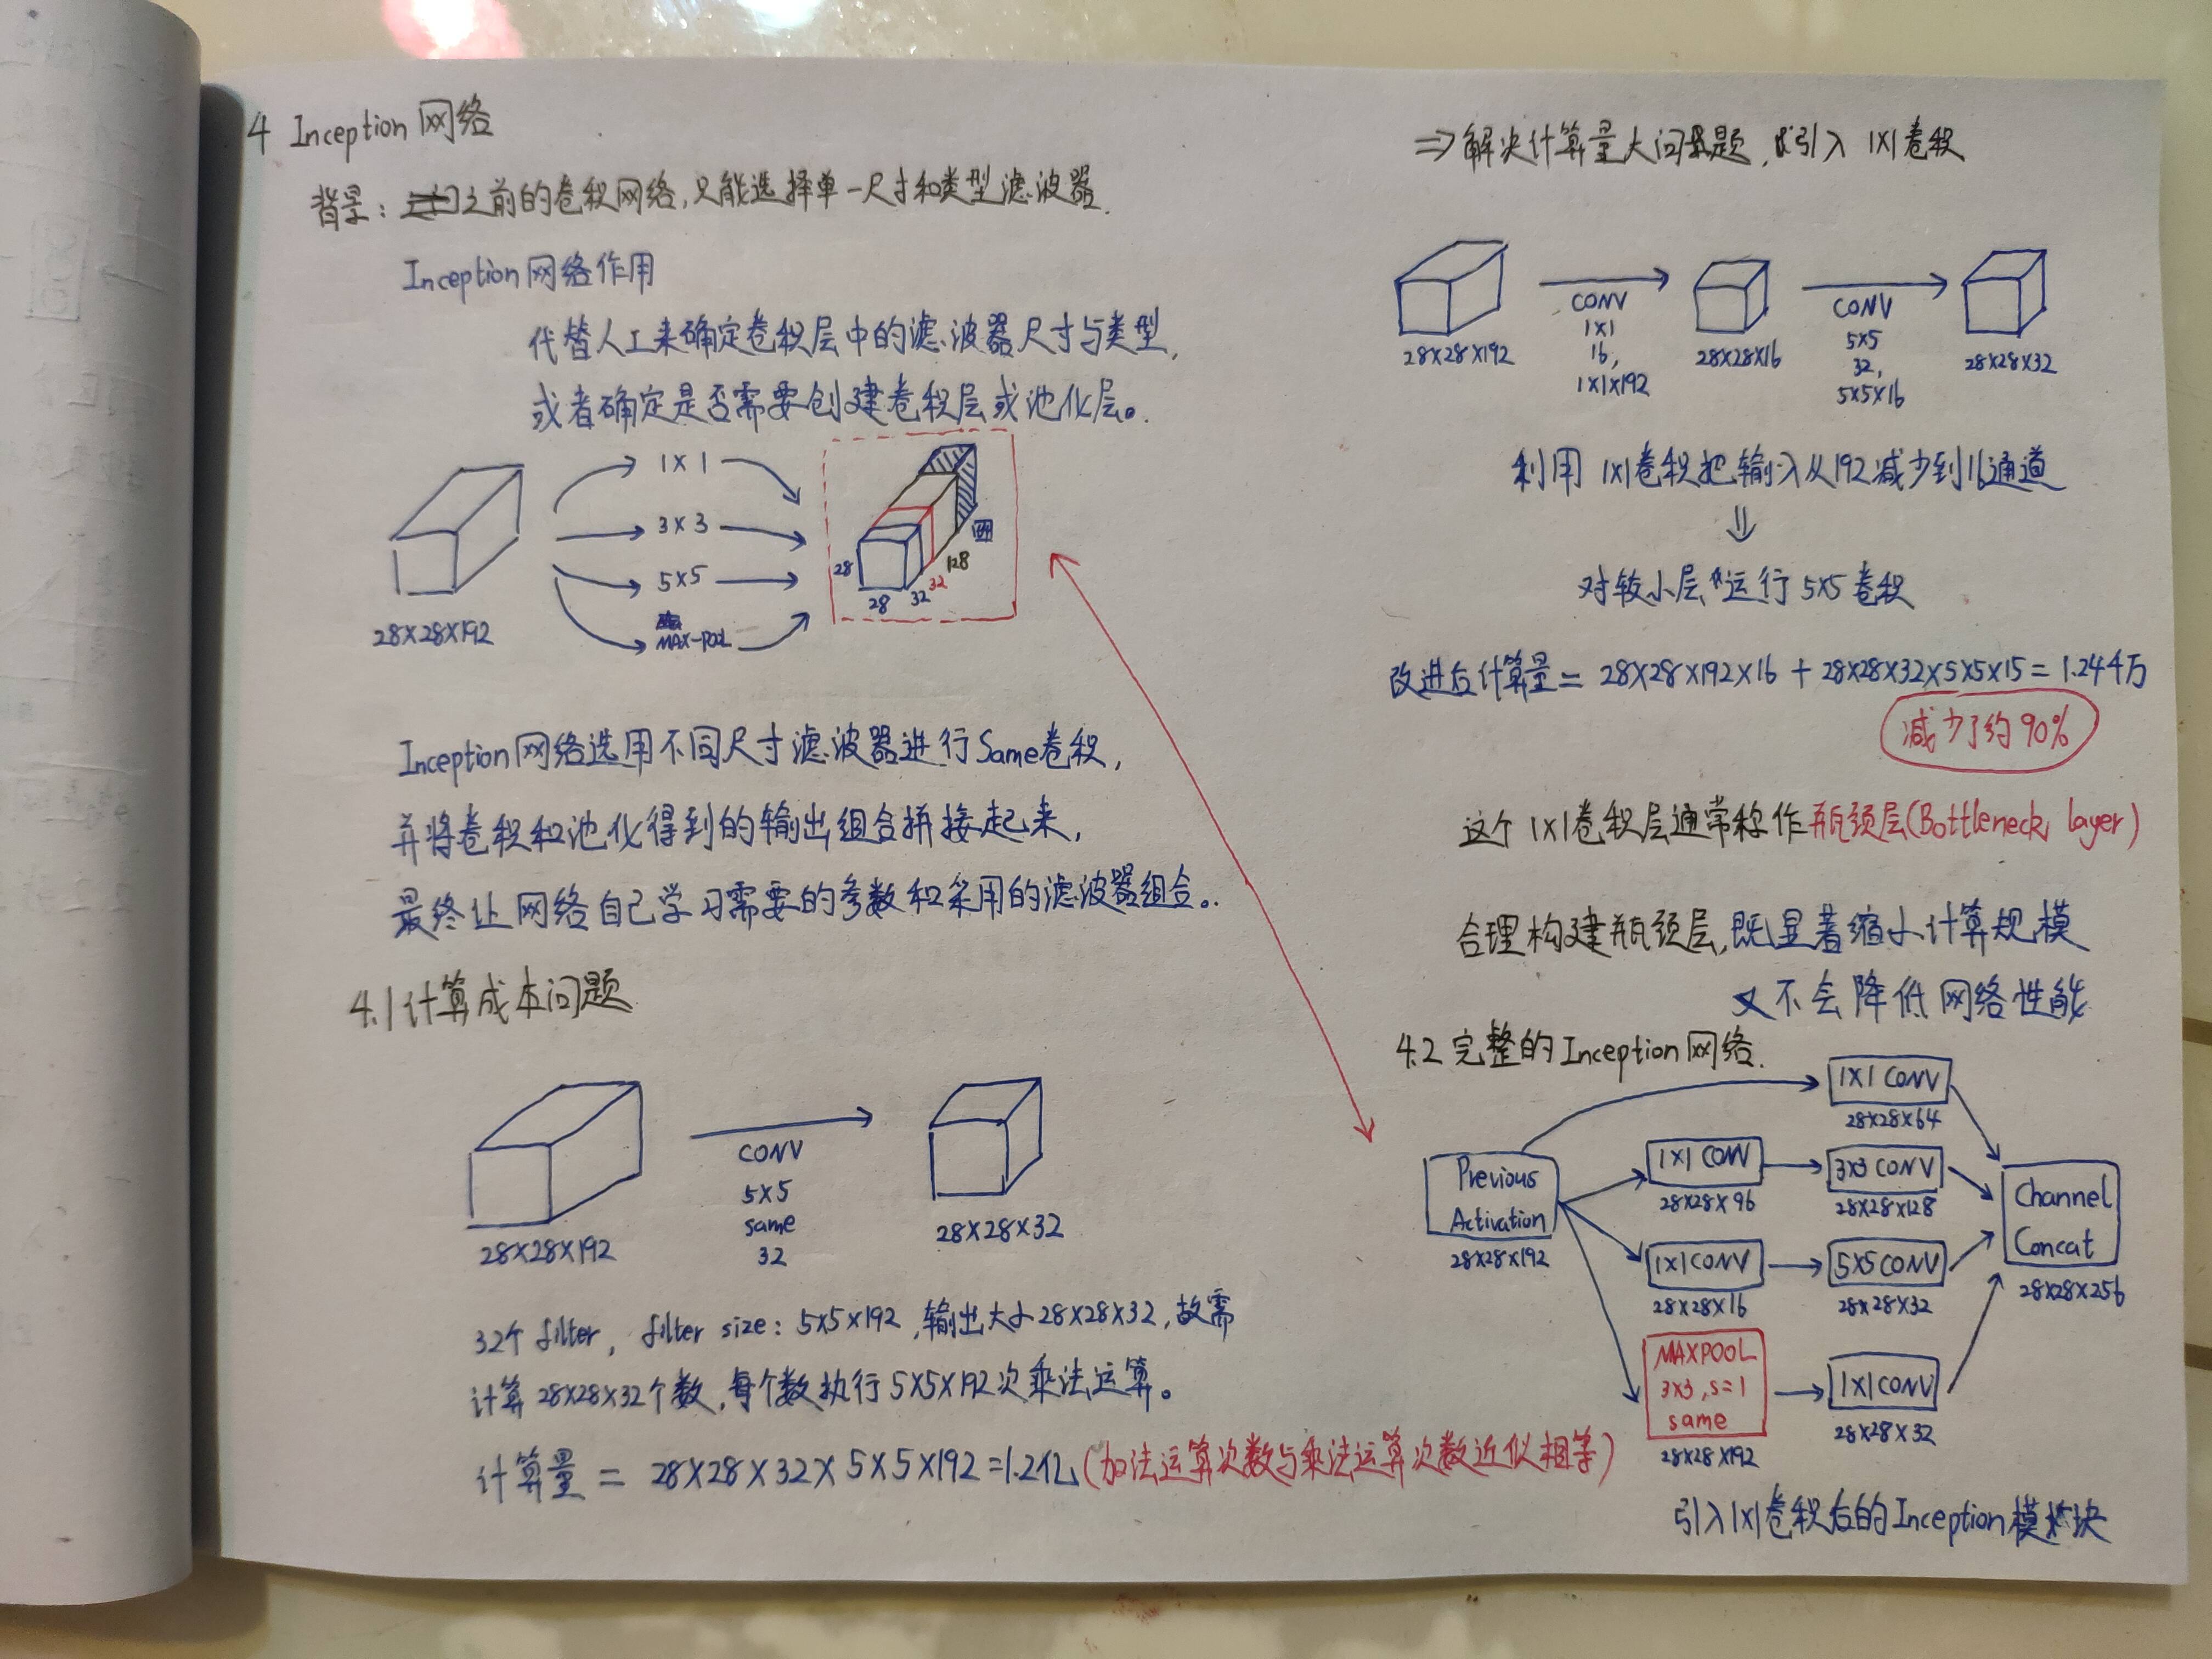 4 Inception 网络
背景: 之前的卷积网络,只能选择单一尺寸和类型滤波器.
Inception 网络作用
代替人工来确定卷积层中的滤波器尺寸与类型,
或者确定是否需要创建卷积层或池化层。
1×1
3×3
5×5
MAX-POOL
28×28×192
28
28
32
32
128
Inception网络选用不同尺寸滤波器进行Same卷积,
并将卷积和池化得到的输出组合拼接起来,
最终让网络自己学习需要的参数和采用的滤波器组合。
4.1 计算成本问题
CONV
5×5
same
32
28×28×192
28×28×32
32个 filter, filter size: 5×5×192,输出大小28×28×32,故需
计算 28×28×32个数,每个数执行5×5×192次乘法运算。
计算量 = 28×28×32×5×5×192=1.2亿(加法运算次数与乘法运算次数近似相等)
⇒解决计算量大问题,引入 1×1卷积
28×28×192
CONV
1×1
16,
1×1×192
28×28×16
CONV
5×5
32,
5×5×16
28×28×32
利用 1×1卷积把输入从192减少到16通道
⇓
对较小层运行 5×5 卷积
改进后计算量= 28×28×192×16 + 28×28×32×5×5×15=1.244万
减少了约90%
这个1×1卷积层通常称作瓶颈层(Bottleneck layer)
合理构建瓶颈层,既显著缩小计算规模
又不会降低网络性能
4.2 完整的Inception网络.
Previous
Activation
28×28×192
1×1 CONV
28×28×64
1×1 CONV
28×28×96
3×3 CONV
28×28×128
1×1 CONV
28×28×16
5×5 CONV
28×28×32
MAXPOOL
3×3,s=1
same
28×28×192
1×1 CONV
28×28×32
Channel
Concat
28×28×256
引入1×1卷积后的Inception模块